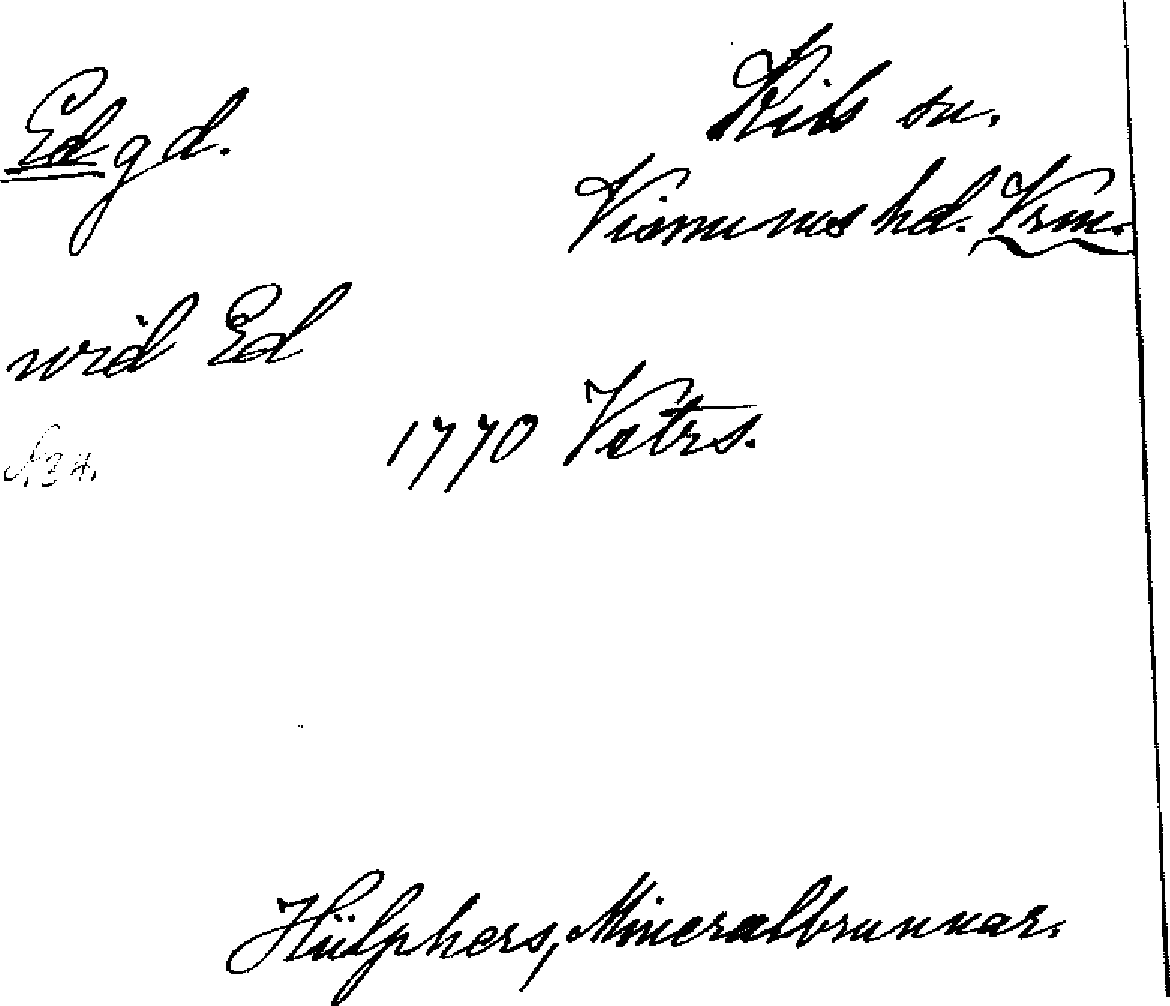 Ed gd.
Kils sn.
Visnums hd. Vrm.
wid Ed
1770 Vattrs.
Hülphers, Mineralbrunnar.